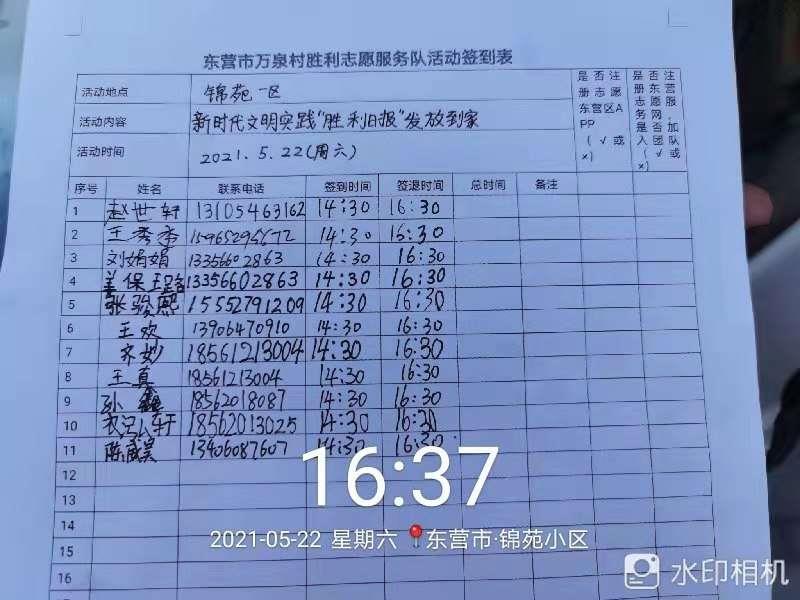 东营市万泉村胜利志愿服务队活动签到表
活动地点 锦苑一区
活动内容 新时代文明实践"胜利日报"发放到家
活动时间 2021.5.22(周六)
是否注册志愿东营区APP(√或×)
是否注册东营志愿服务网,是否加入团队(√或×)
序号 姓名 联系电话 签到时间 签退时间 总时间 备注
1 赵世轩 13105463162 14:30 16:30
2 王秀 14:30 16:30
3 刘娟娟 13356602863 14:30 16:30
4 姜保 13356602863 14:30 16:30
5 张骏熙 15552791209 14:30 16:30
6 王欢 13906470910 14:30 16:30
7 齐妙 18561213004 14:30 16:30
8 王真 18561213004 14:30 16:30
9 孙鑫 18562018087 14:30 16:30
10 轩 18562013025 14:30 16:30
11 陈威昊 13406087607 14:30 16:30
12
13
14
15
16
16:37
2021-05-22 星期六 东营市·锦苑小区
水印相机